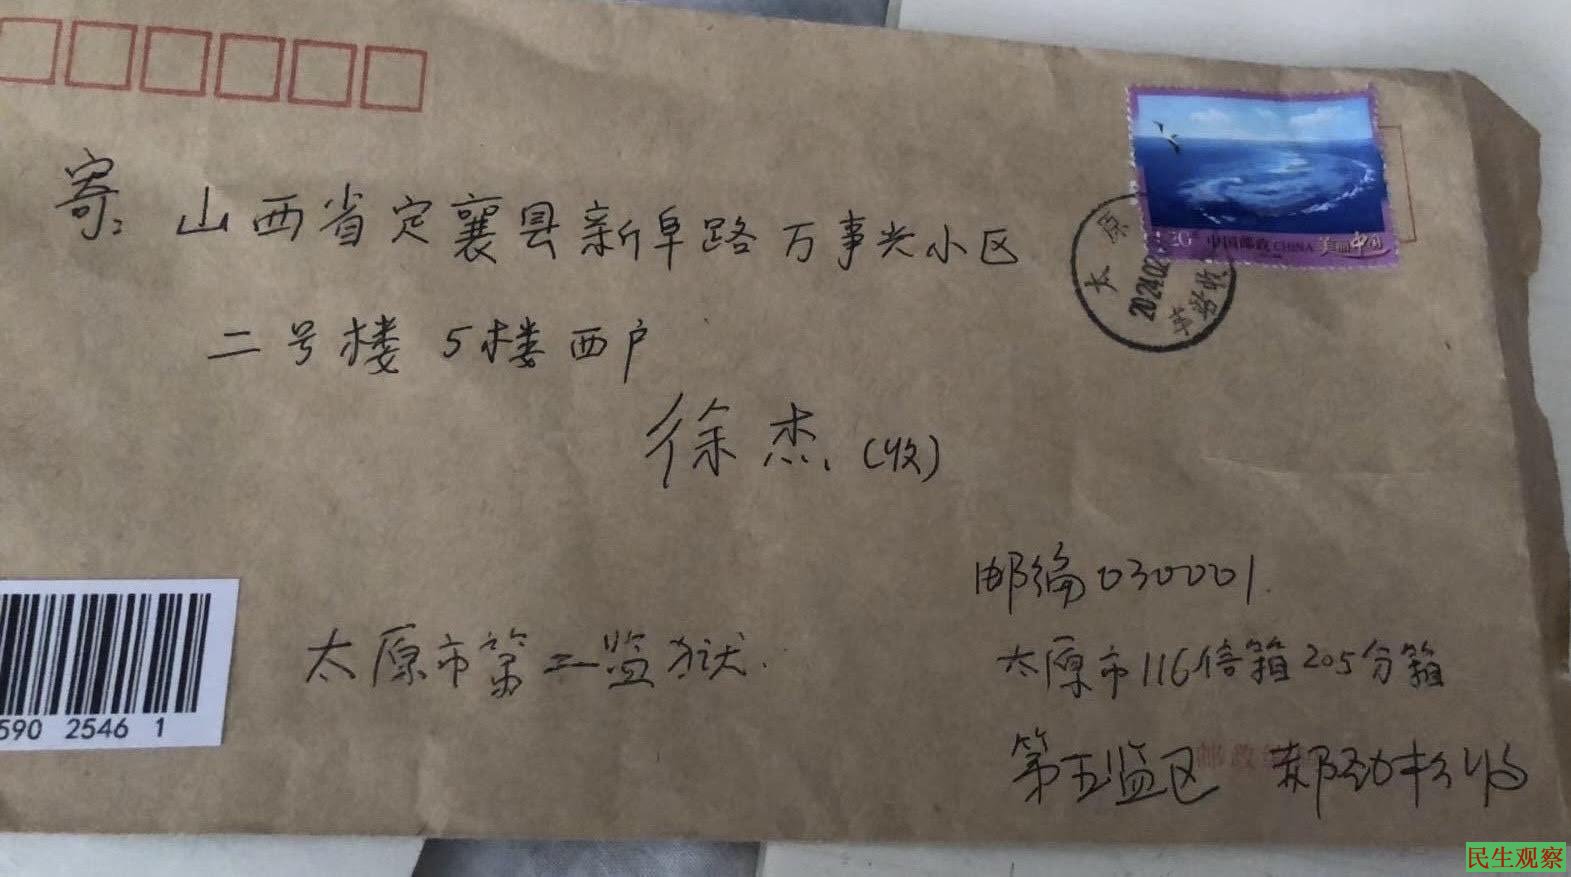 寄: 山西省定襄县新阜路万事兴小区
二号楼 5楼西户
徐杰 (收)
邮编030001
太原市116信箱205分箱
太原市第二监狱
第五监区 郝劲松
中国邮政 CHINA 美丽中国
太原
2024.02
590 2546 1
邮政
民生观察